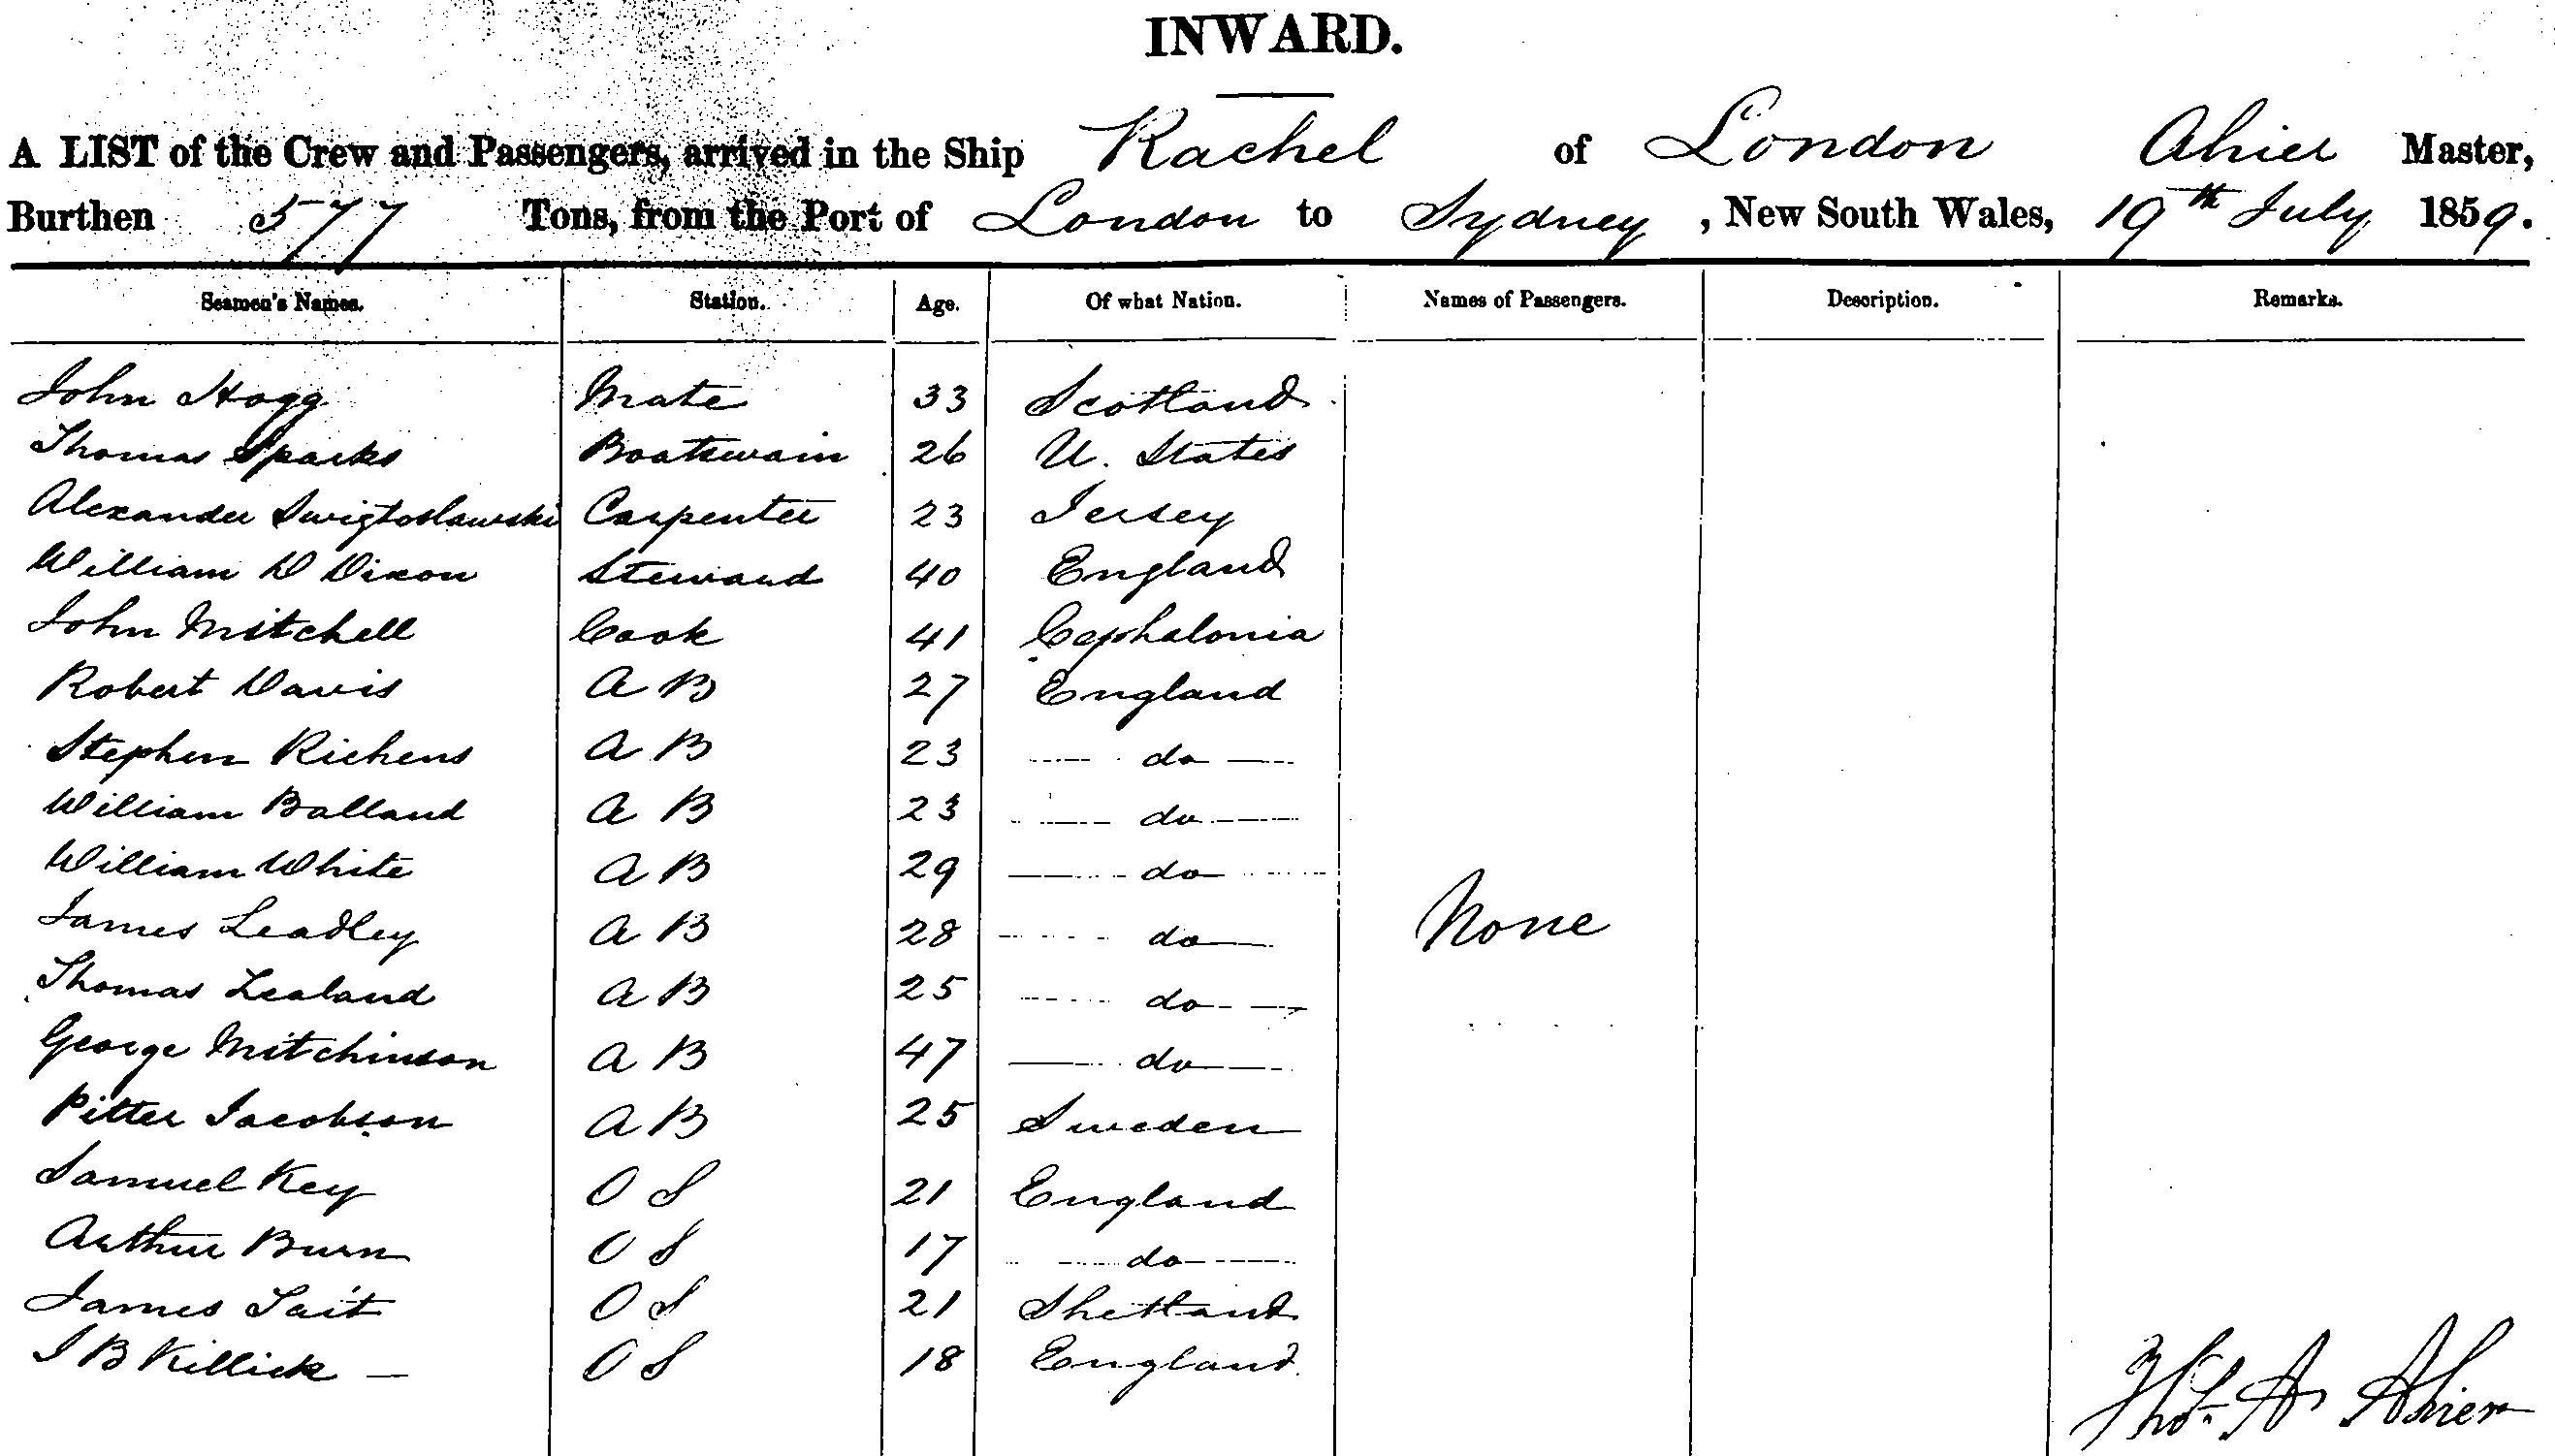 INWARD.
A LIST of the Crew and Passengers, arrived in the Ship Rachel of London Ahier Master,
Burthen 577 Tons, from the Port of London to Sydney, New South Wales, 19th July 1859.
Seamen's Names. Station. Age. Of what Nation. Names of Passengers. Description. Remarks.
John Hogg Mate 33 Scotland
Thomas Sparks Boatswain 26 U. States
Alexander Swigtoslawski Carpenter 23 Jersey
William D Dixon Steward 40 England
John Mitchell Cook 41 Cephalonia
Robert Davis A B 27 England
Stephen Richens A B 23 do
William Balland A B 23 do
William White A B 29 do
James Leadley A B 28 do None
Thomas Lealand A B 25 do
George Mitchinson A B 47 do
Pitter Jacobson A B 25 Sweden
Samuel Key O S 21 England
Arthur Burn O S 17 do
James Tait O S 21 Shetland
J B Killick — O S 18 England
Thos. A Ahier